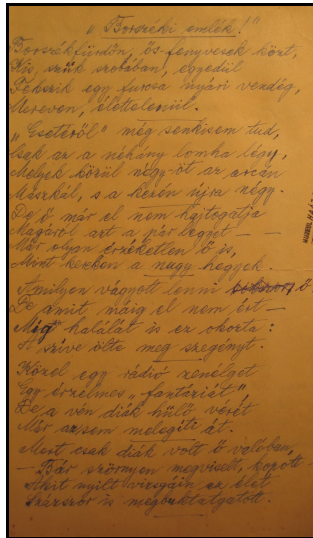 „Borszéki emlék!"
Borszékfürdőn, ős-fenyvesek közt,
Kis, szűk szobában, egyedül
Fekszik egy furcsa nyári vendég,
Mereven, élettelenül.
„Esetéről" még senkisem tud,
Csak az a néhány lomha légy,
Melyek közül négy-öt az arcán
Mászkál, s a kezén újra négy.
De ő már el nem hajtogatja
Magáról azt a pár legyet —
Már olyan érzéketlen ő is,
Mint körben a nagy hegyek.
Amilyen vágyott lenni ő
De amit máig el nem ért —
Míg halálát is ez okozta:
A szíve ölte meg szegényt.
Közel egy rádió zenélget
Egy érzelmes „fantáziát"
De a vén diák hűlő vérét
Már az sem melegíti át.
Mert csak diák volt ő valóban,
— Bár szörnyen megviselt, kopott —
Akit nyílt vizsgáin az élet
Százszor is megbuktatgatott.